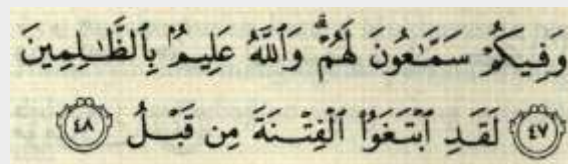 وَفِيكُمْ سَمَّـٰعُونَ لَهُمْ ۗ وَٱللَّهُ عَلِيمٌۢ بِٱلظَّـٰلِمِينَ
٤٧ لَقَدِ ٱبْتَغَوُا۟ ٱلْفِتْنَةَ مِن قَبْلُ ٤٨